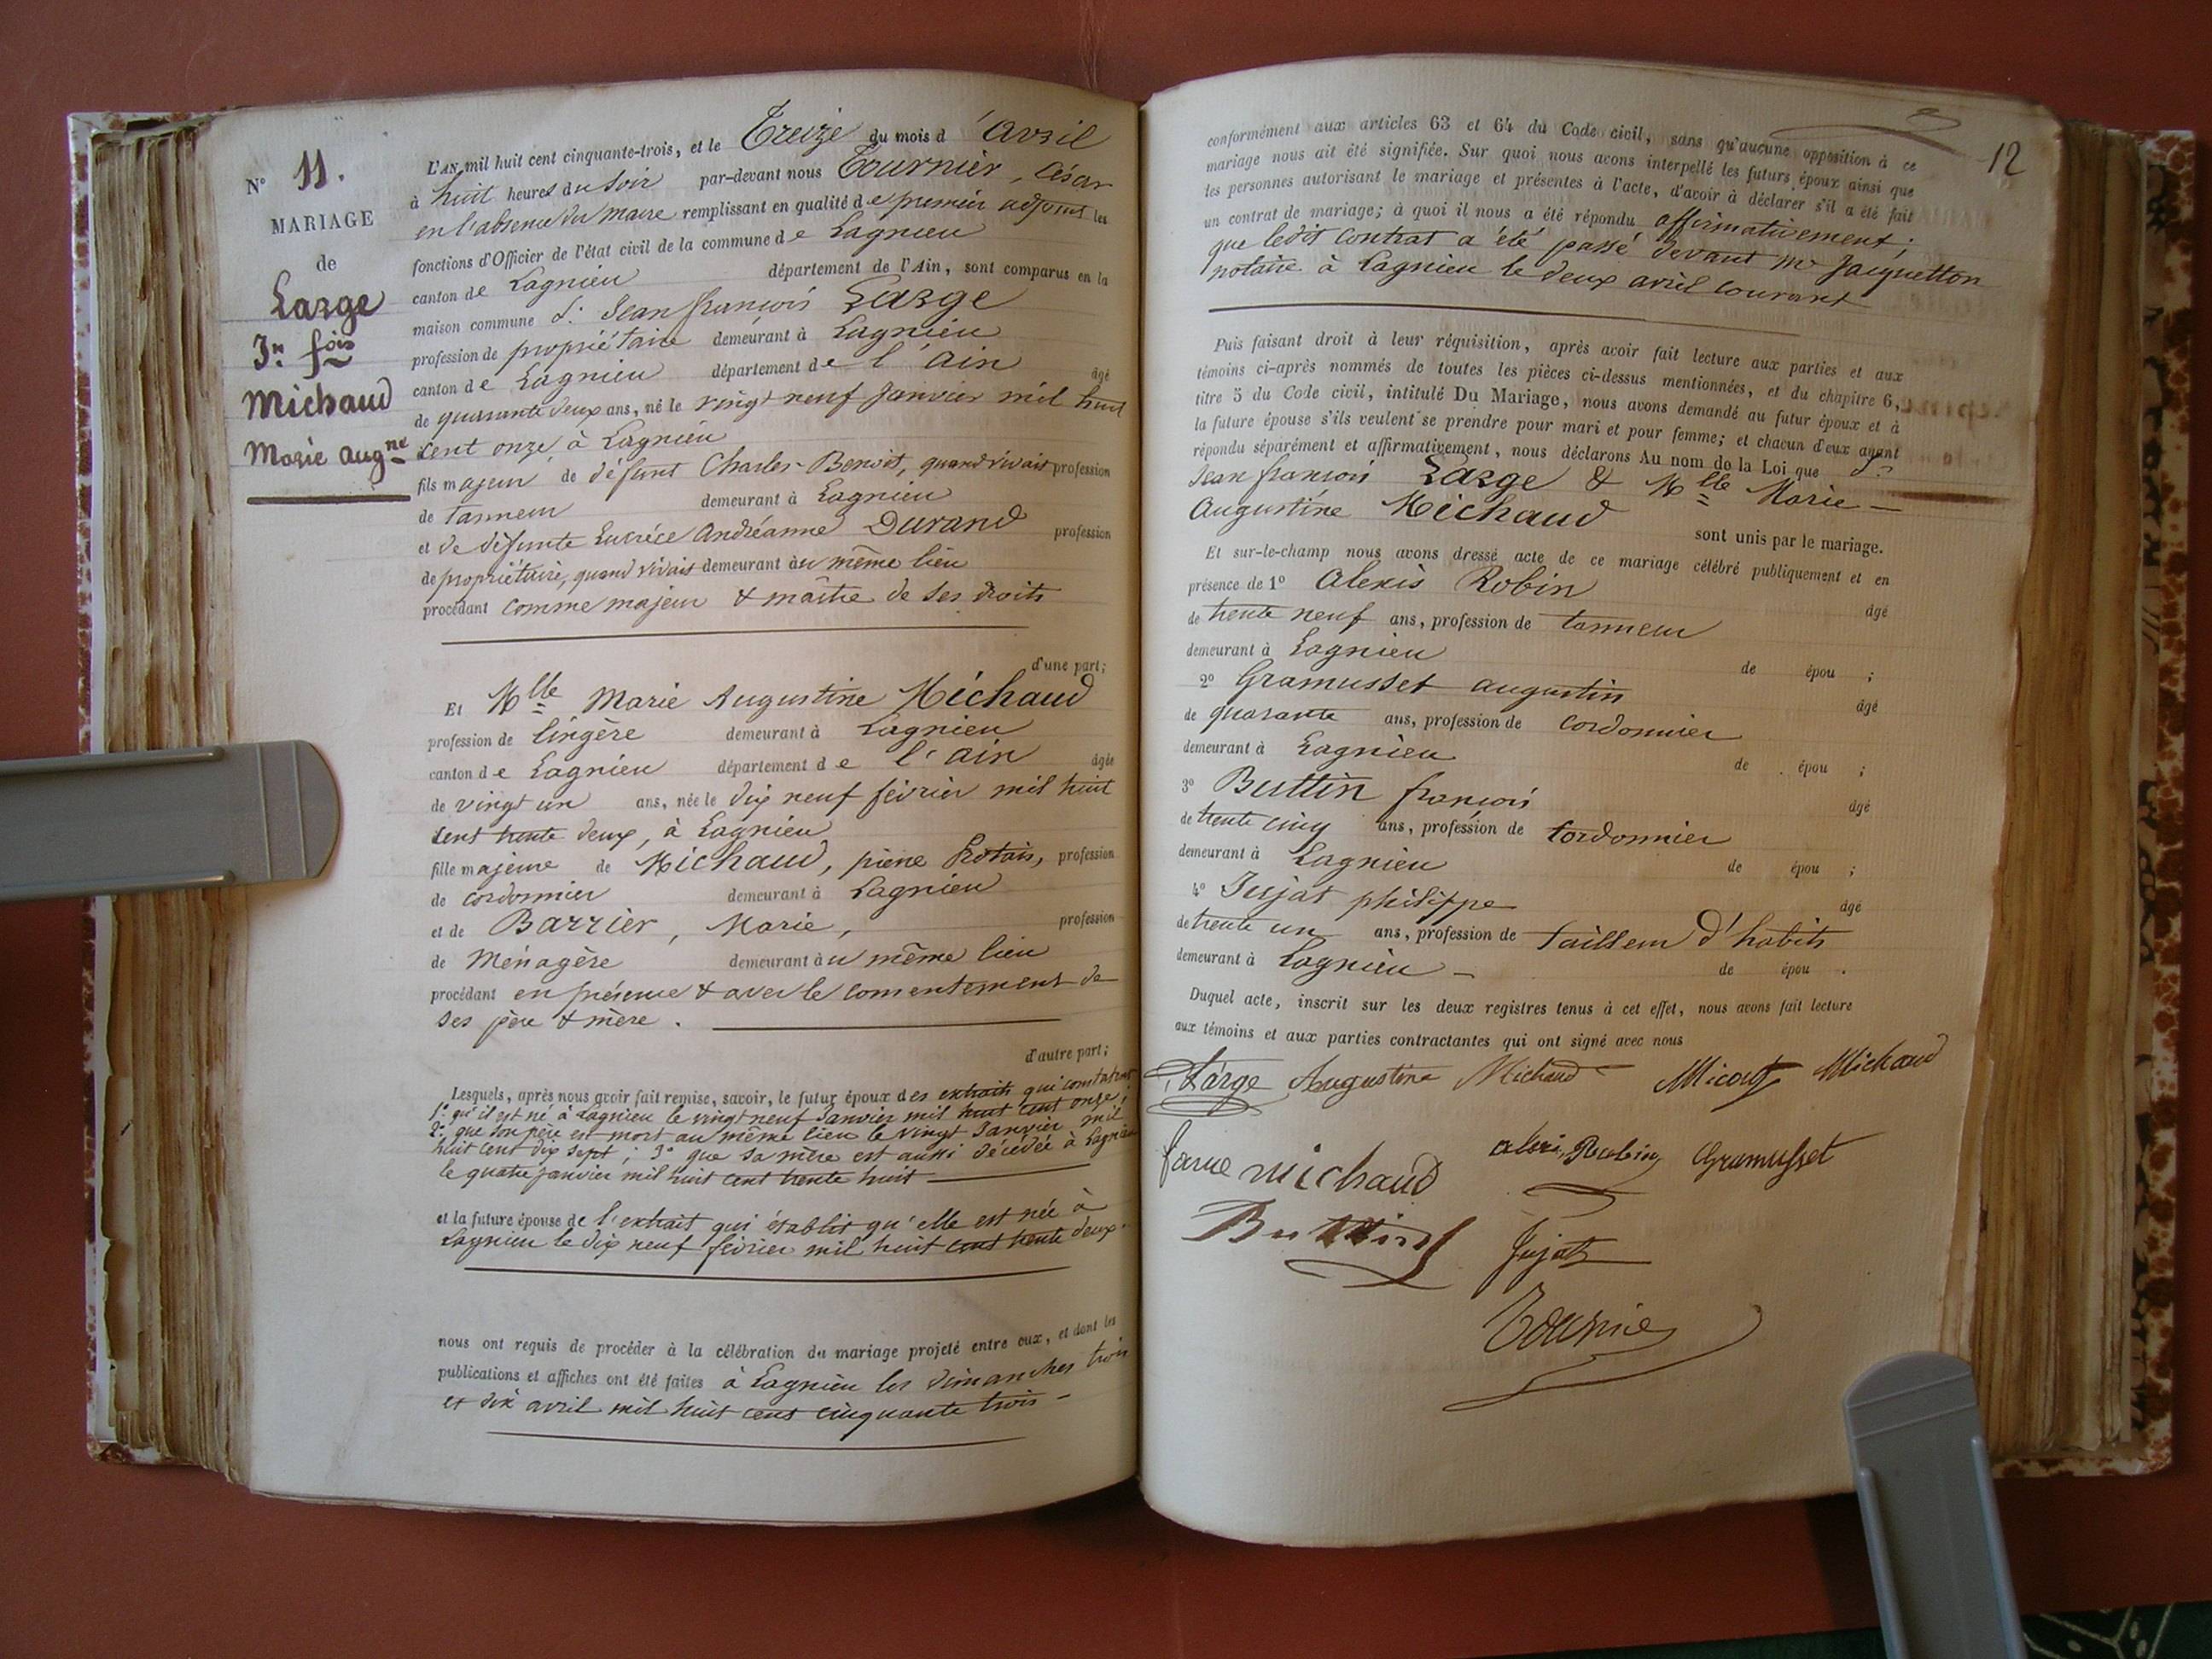 N° 11.
MARIAGE
de
Large
Jn. fois
Michaud
Marie Augne
L'AN mil huit cent cinquante-trois, et le Treize du mois d'avril
à huit heures du soir par-devant nous Tournier, César
en l'absence du maire remplissant en qualité de premier adjoint les
fonctions d'Officier de l'état civil de la commune de Lagnieu
canton de Lagnieu département de l'Ain, sont comparus en la
maison commune Sr. Jean françois Large
profession de propriétaire demeurant à Lagnieu
canton de Lagnieu département de l'Ain âgé
de quarante deux ans, né le vingt neuf Janvier mil huit
cent onze à Lagnieu
fils majeur de défunt Charles-Benoit, quand vivait profession
de tanneur demeurant à Lagnieu
et de défunte Lucrèce Andréanne Durand profession
de propriétaire, quand vivait demeurant au même lieu
procédant comme majeur & maître de ses droits
d'une part;
Et Mlle Marie Augustine Michaud
profession de lingère demeurant à Lagnieu
canton de Lagnieu département de l'Ain âgée
de vingt un ans, née le dix neuf février mil huit
cent trente deux, à Lagnieu
fille majeure de Michaud, pierre Protais, profession
de cordonnier demeurant à Lagnieu
et de Barrier, Marie, profession
de Ménagère demeurant au même lieu
procédant en présence & avec le consentement de
ses père & mère.
d'autre part;
Lesquels, après nous avoir fait remise, savoir, le futur époux des extraits qui constatent
1° qu'il est né à Lagnieu le vingt neuf Janvier mil huit cent onze;
2° que son père est mort au même lieu le vingt Janvier mil
huit cent dix sept; 3° que sa mère est aussi décédée à Lagnieu
le quatre janvier mil huit cent trente huit
et la future épouse de l'extrait qui établit qu'elle est née à
Lagnieu le dix neuf février mil huit cent trente deux.
nous ont requis de procéder à la célébration du mariage projeté entre eux, et dont les
publications et affiches ont été faites à Lagnieu les dimanches trois
et dix avril mil huit cent cinquante trois
12
conformément aux articles 63 et 64 du Code civil, sans qu'aucune opposition à ce
mariage nous ait été signifiée. Sur quoi nous avons interpellé les futurs époux ainsi que
les personnes autorisant le mariage et présentes à l'acte, d'avoir à déclarer s'il a été fait
un contrat de mariage; à quoi il nous a été répondu affirmativement;
que ledit contrat a été passé devant me Jacquetton
notaire à Lagnieu le deux avril courant
Puis faisant droit à leur réquisition, après avoir fait lecture aux parties et aux
témoins ci-après nommés de toutes les pièces ci-dessus mentionnées, et du chapitre 6,
titre 5 du Code civil, intitulé Du Mariage, nous avons demandé au futur époux et à
la future épouse s'ils veulent se prendre pour mari et pour femme; et chacun d'eux ayant
répondu séparément et affirmativement, nous déclarons Au nom de la Loi que Sr.
Jean françois Large & Mlle Marie
Augustine Michaud
sont unis par le mariage.
Et sur-le-champ nous avons dressé acte de ce mariage célébré publiquement et en
présence de 1° Alexis Robin
âgé
de trente neuf ans, profession de tanneur
demeurant à Lagnieu
de épou ;
2° Gramusset augustin
âgé
de quarante ans, profession de cordonnier
demeurant à Lagnieu
de épou ;
3° Buttin françois
âgé
de trente cinq ans, profession de cordonnier
demeurant à Lagnieu
de épou ;
4° Jujat philippe
âgé
de trente un ans, profession de tailleur d'habits
demeurant à Lagnieu
de épou .
Duquel acte, inscrit sur les deux registres tenus à cet effet, nous avons fait lecture
aux témoins et aux parties contractantes qui ont signé avec nous
Large Augustine Michaud Michaud
michaud alexis Robin Gramusset
Buttin Jujat
Tournier